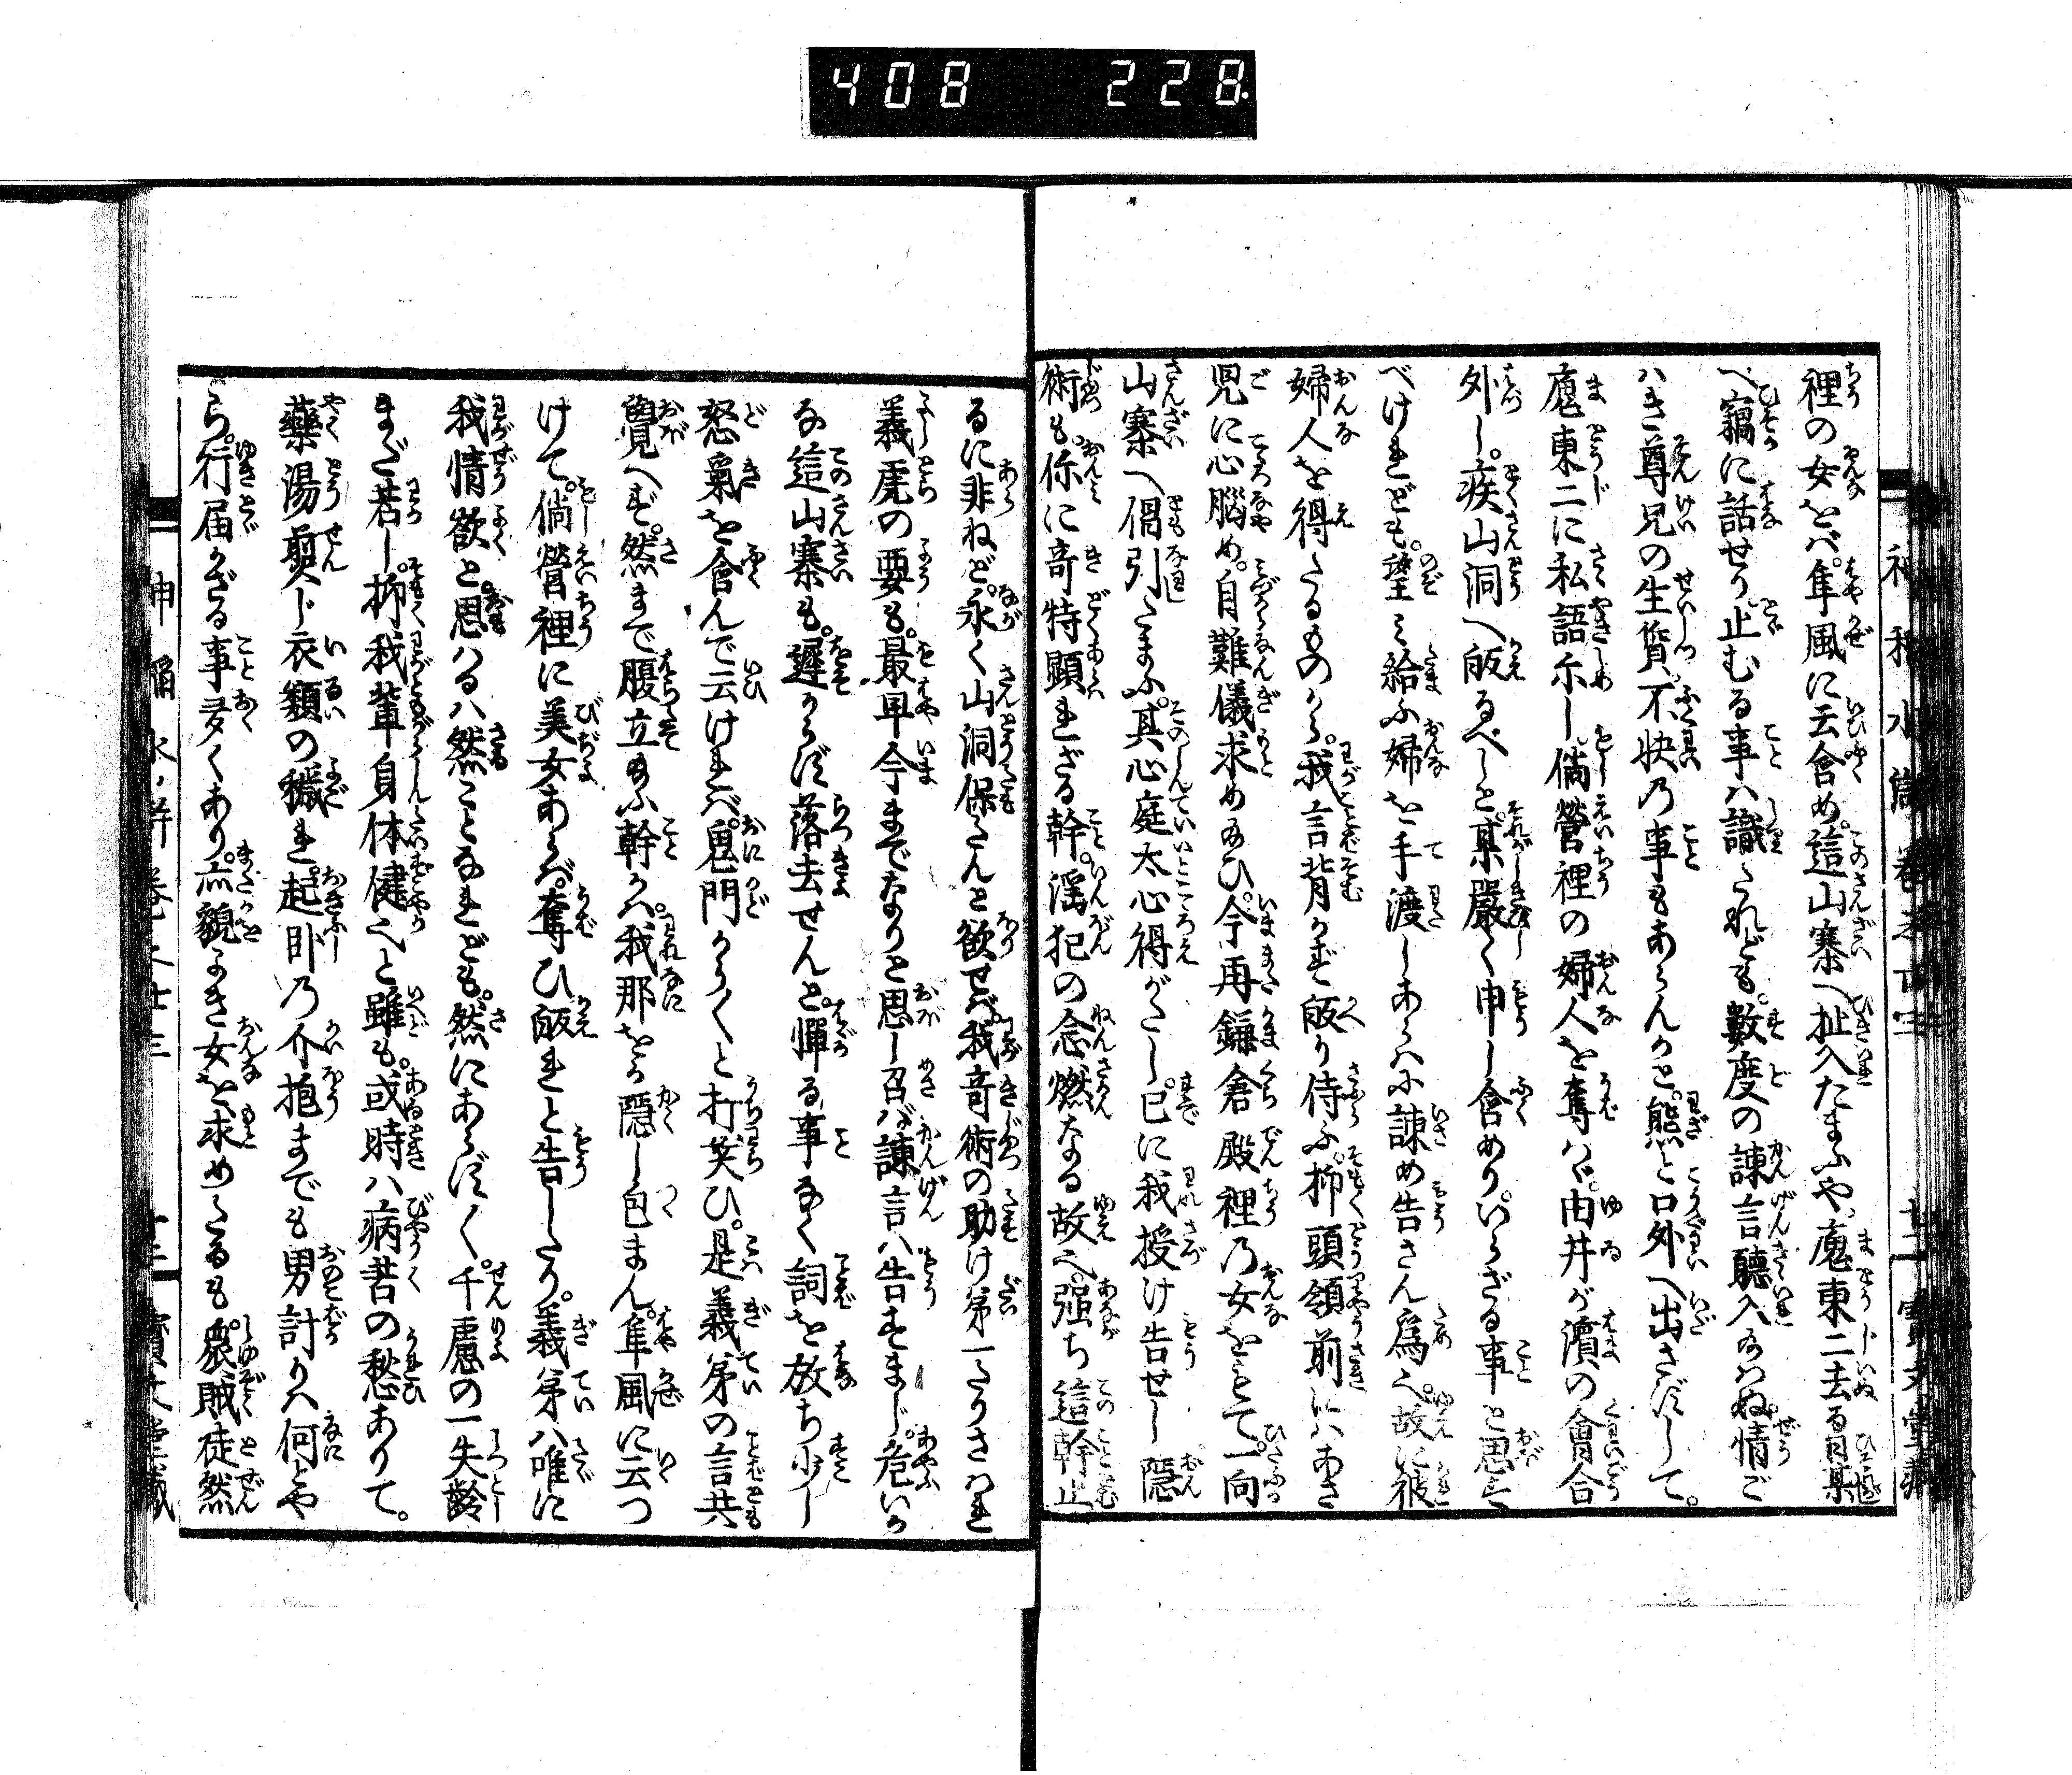 408 228
裡の女をバ。隼風に云含め。這山寨へ扯入たまふや。魔東二去る日某
へ竊に話せり止むる事ハ識たれども。数度の諫言聽入給ハぬ情ご
ハき尊兄の生質。不快の事もあらんかと。態と口外へ出さずして。
魔東二に私語示し。倘營裡の婦人を奪ハヾ。由井が濵の會合
外し。疾山洞へ皈るべしと。某嚴く申し含めり。いらざる事と思す
べけれども。望み給ふ婦を手渡しあらハ小諫め告さん爲へ。故に彼
婦人を得たるものから。我言背かず皈り侍ふ。抑頭領前にハあさ
児に心腦め。自難儀求め給ひ。今再鎌倉殿裡の女をもて。一向
山寨へ倡引たまふ。其心庭太心得がたし。已に我授け告せし隱
術も。你に竒特顕れざる幹。淫犯の念燃なる故へ。强ち這幹止
るに非ねど。永く山洞保たんと欲せバ。我竒術の助け第一たりさハれ
義虎の要も。最早今までなりと思し召バ諫言ハ告すまじ。危いか
な這山寨も。遲からず落去せんと。憚る事なく詞を放ち少し
怒氣を含んで云けれバ。鬼門から〱と打笑ひ。是義弟の言共
覺へず。然まで腹立給ふ幹かハ。我那をか隱し包まん。隼風に云つ
けて。倘營裡に美女あらバ。奪ひ皈れと告したり。義弟ハ唯に
我情欲と。思ハるハ然ことなれども。然にあらず〱。千慮の一失齢
まだ若し。抑我輩身体健へと雖も。或時ハ病苦の愁ひありて。
藥湯煎じ衣類の穢れ。起臥の介抱までも男計りハ何とや
ら。行届かざる事多くあり。㒵貌よき女を求めたるも。衆賊徒然